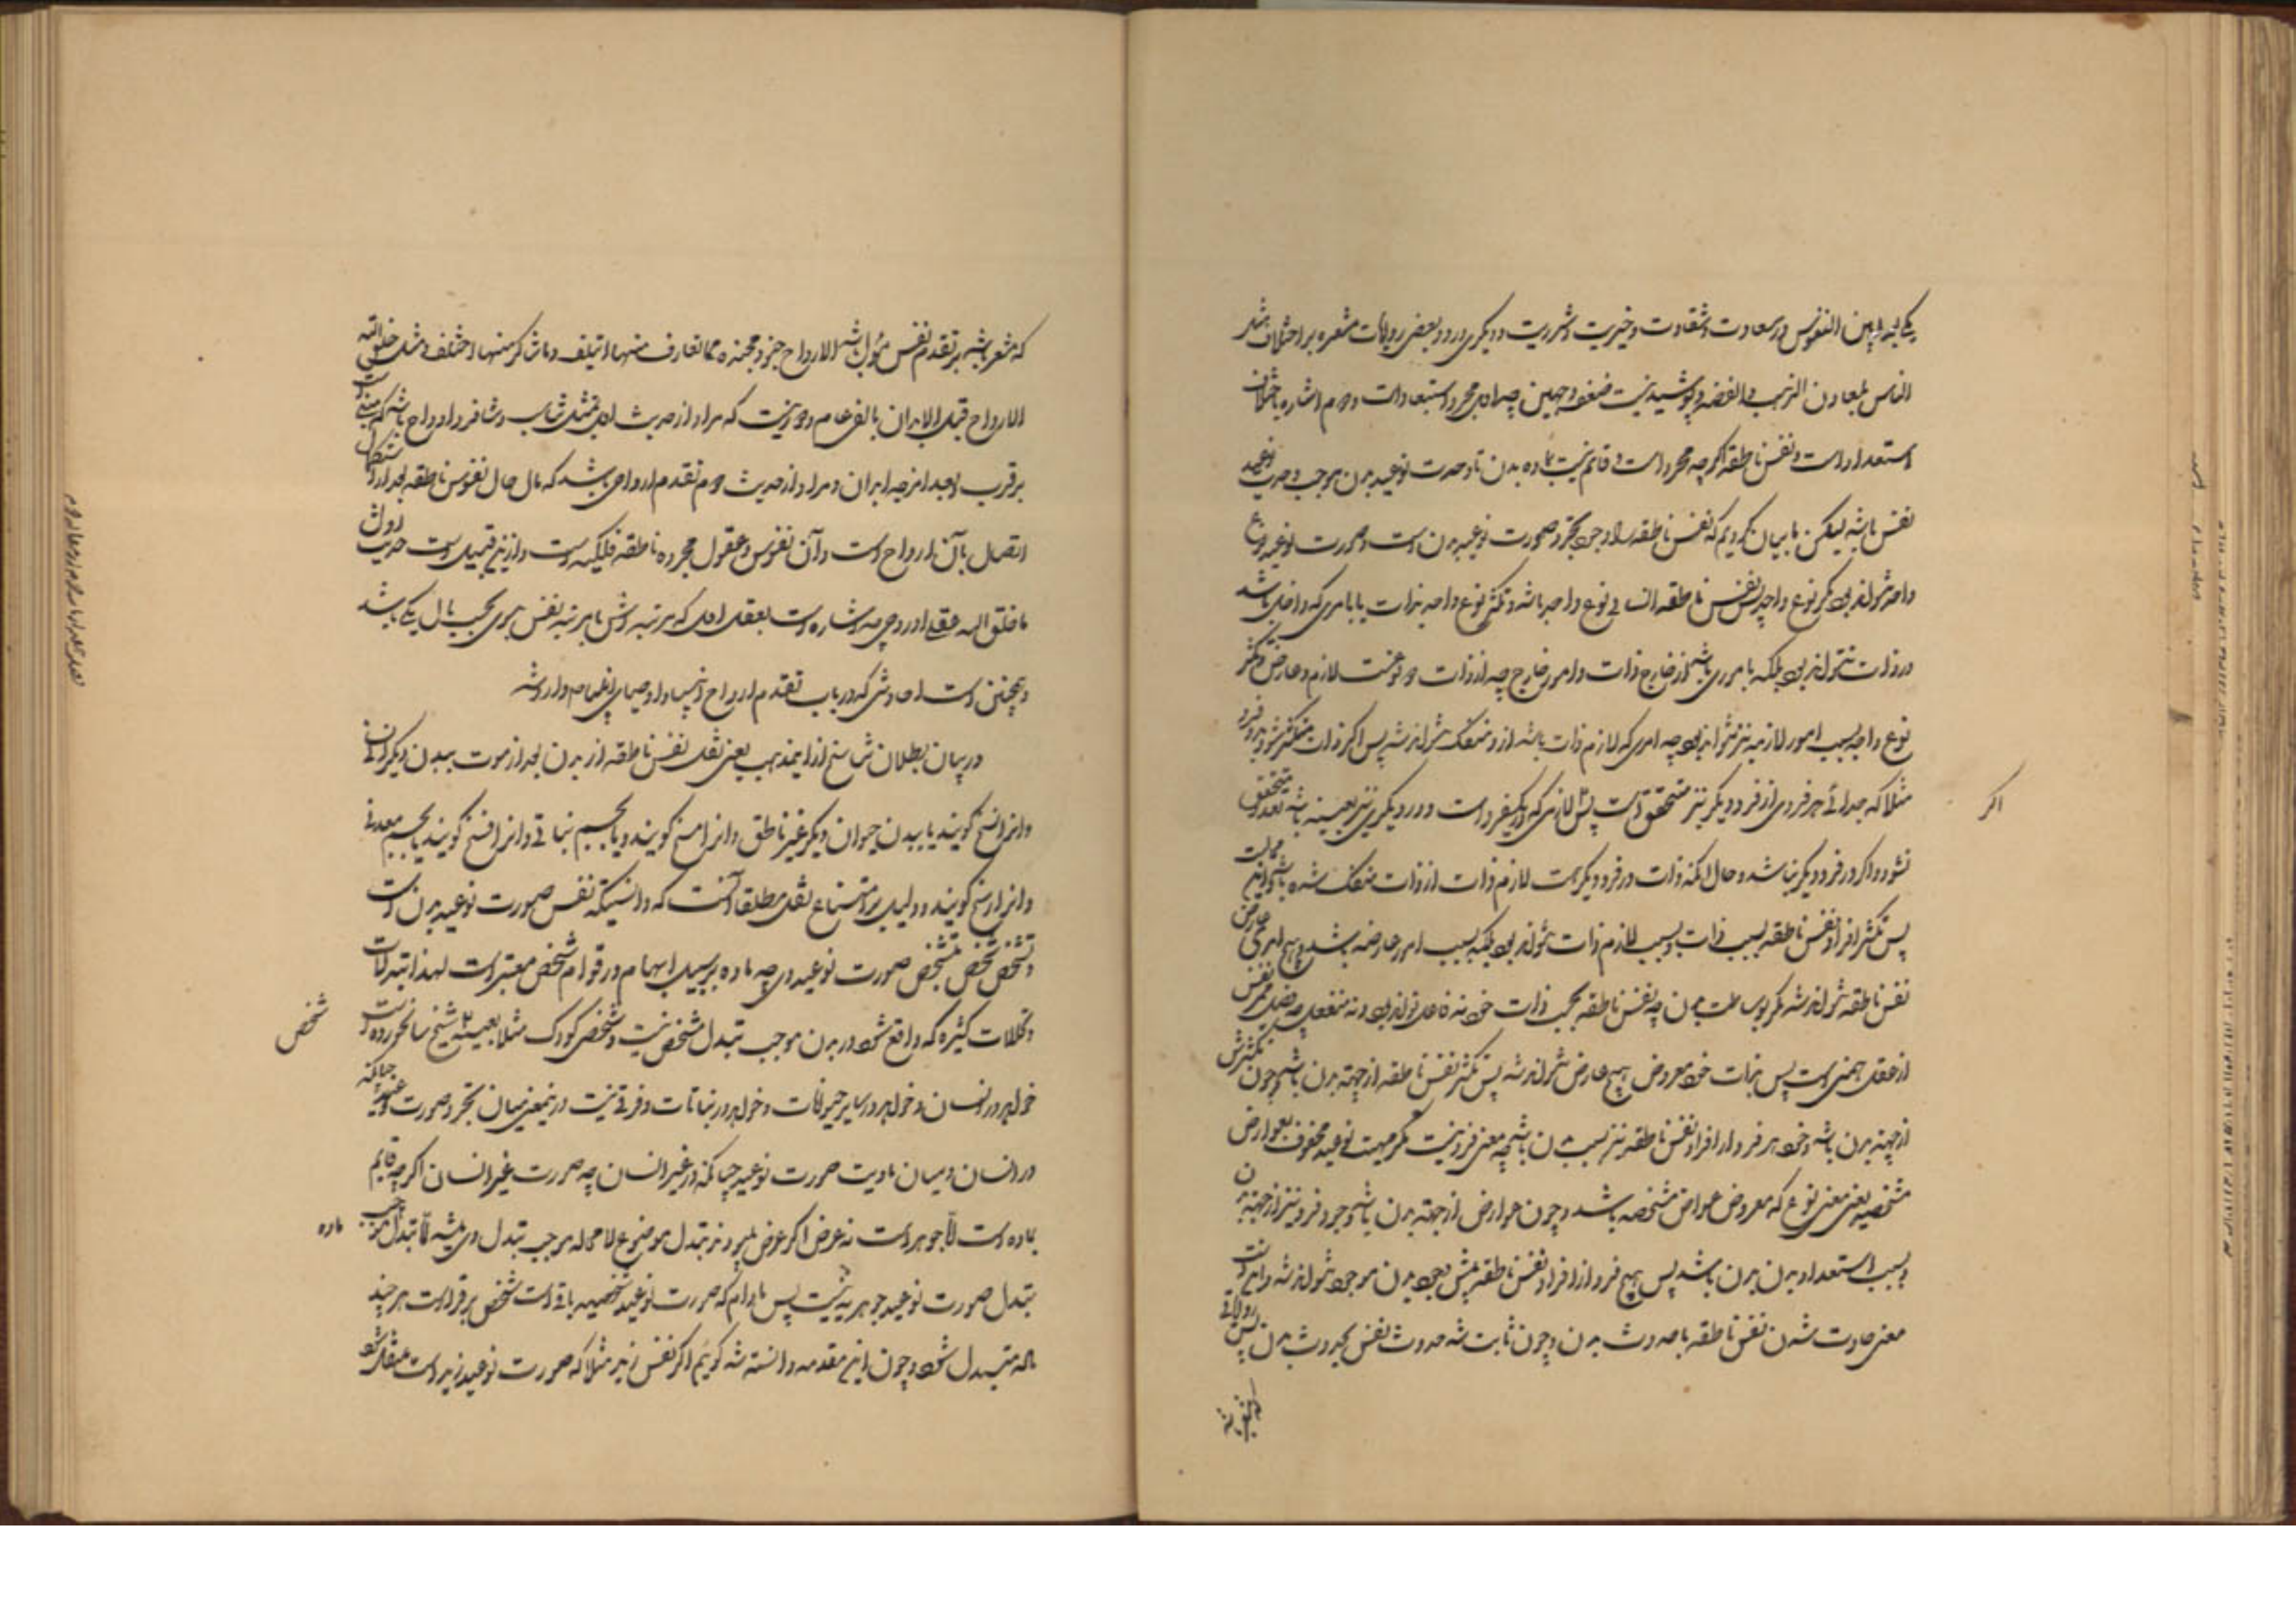 یکی تباین النفوس در سعادت و شقاوت و خیریت و شرریت و دیگری ورود بعضی روایات مشعره بر اختلاف مثل
الناس کمعادن الذهب والفضه و پوشیده نیست ضعف وجهین چه اول مجرد استبعاد است و دوم اشاره باختلاف
استعداد است و نفس ناطقه اگرچه مجرد است و قائم نیست بماده بدن تا وحدت نوعیه بدن موجب وحدت نوعیه
نفس باشد لیکن ما بیان کردیم که نفس ناطقه با وجود تجرد صورت نوعیه بدن است و صورت نوعیه نوع
واحد نتواند بود مگر نوع واحد پس نفس ناطقه انسانی نوع واحد باشد و تکثر نوع واحد بذات یا بامری که داخل باشد
در ذات نتواند بود بلکه بامری باشد از خارج ذات و امر خارج چه از ذات دو نوعست لازم و عارض و تکثر
نوع واحد بسبب امور لازمه نیز نتواند بود چه امری که لازم ذات باشد از او منفک نتواند شد پس اگر ذات متکثر شود بدو فرد
مثلا که جدائی هر فردی از فرد دیگر نیز متحقق است پس لازمی که در یکفرد است و در دیگری نیز بعینه باشد تعدد متحقق
اگر
نشود و اگر در فرد دیگر نباشد و حال آنکه ذات در فرد دیگر هست لازم ذات از ذات منفک شده باشد و این محالست
پس تکثر افراد نفس ناطقه بسبب ذات و بسبب لازم ذات نتواند بود بلکه بسبب امر عارض باشد و هیچ امر عارض
نفس ناطقه نتواند شد مگر بوساطت بدن چه نفس ناطقه بحسب ذات خود نه فاعل تواند بود و نه منفعل
از عقل محض است پس بذات خود معروض هیچ عارض نتواند شد پس تکثر نفس ناطقه از جهة بدن باشد و چون تکثرش
از جهة بدن باشد وجود هر فرد از افراد نفس ناطقه نیز بسبب بدن باشد چه معنی فرد نیست مگر مهیت نوعیه محفوف بعوارض
مشخصه یعنی معنی نوع که معروض عوارض مشخصه باشد و چون عوارض از جهة بدن باشد وجود فرد نیز از جهة بدن
و بسبب استعداد بدن باشد پس هیچ فرد از افراد نفس ناطقه پیش از وجود بدن موجود نتواند شد و این است
معنی حادث شدن نفس ناطقه بحدوث بدن و چون ثابت شد حدوث نفس بحدوث بدن پس روایاتی
که مشعر باشد بر تقدم نفس مؤول باشد الارواح جنود مجنده ما تعارف منها ایتلف وما تناکر منها اختلف و مثل خلق الله
الارواح قبل الابدان بالفی عام و دور نیست که مراد از حدیث اول تمثیل تناسب و تنافر ارواح باشد
بر قرب و بعد امزجه ابدان و مراد از حدیث دوم تقدم ارواحی باشد که مآل حال نفوس ناطقه بعد از استکمال
اتصال بآن ارواح است و آن نفوس و عقول مجرده ناطقه فلکیه است و از این قبیل است حدیث اول
ما خلق الله عقلی او روحی چه اشاره است بعقل اول که مرتبه اش با مرتبه نفس نبوی بحسب مآل یکی باشد
و همچنین است احادیثی که در باب تقدم ارواح انبیا و اوصیا علیهم السلام وارد شده
در بیان بطلان تناسخ از ایمذهب یعنی نقل نفس ناطقه از بدن بعد از موت ببدن دیگر انسانی
و انرا نسخ گویند یا ببدن حیوان دیگر غیر ناطق و انرا مسخ گویند و یا بجسم نباتی و انرا فسخ گویند یا بجسم معدنی
و انرا رسخ گویند و دلیل بر امتناع نقل مطلقا آنست که دانستیکه نفس صورت نوعیه بدن است
و تشخص شخص بتشخص صورت نوعیه وی چه ماده بر سبیل ابهام در قوام شخص معتبر است لهذا تبدلات
و تحللات کثیره که واقع شود در بدن موجب تبدل شخص نیست و شخص کودک مثلا بعینه شیخ سالخورده است
شخص
خواه در انسان و خواه در سایر حیوانات و خواه در نباتات و فرقی نیست در اینمعنی میان تجرد صورت نوعیه چنانکه
در انسان و میان مادیت صورت نوعیه چنانکه در غیر انسان چه صورت غیر انسان اگرچه قایم
بماده است لا جوهر است نه عرض اگر عرض میبود نیز تبدل موضوع لا محاله موجب تبدل وی میشد اما تبدل موجب
ماده
تبدل صورت نوعیه جوهریه نیست پس مادام که صورت نوعیه شخصیه باقی است شخص برقرار است هر چند
ماده متبدل شود و چون این مقدمه دانسته شد گوئیم اگر نفس زید مثلا که صورت نوعیه زید است منتقل شود